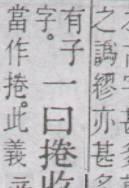 之譌繆亦甚多
有子一曰捲收
字。
當作捲。此義